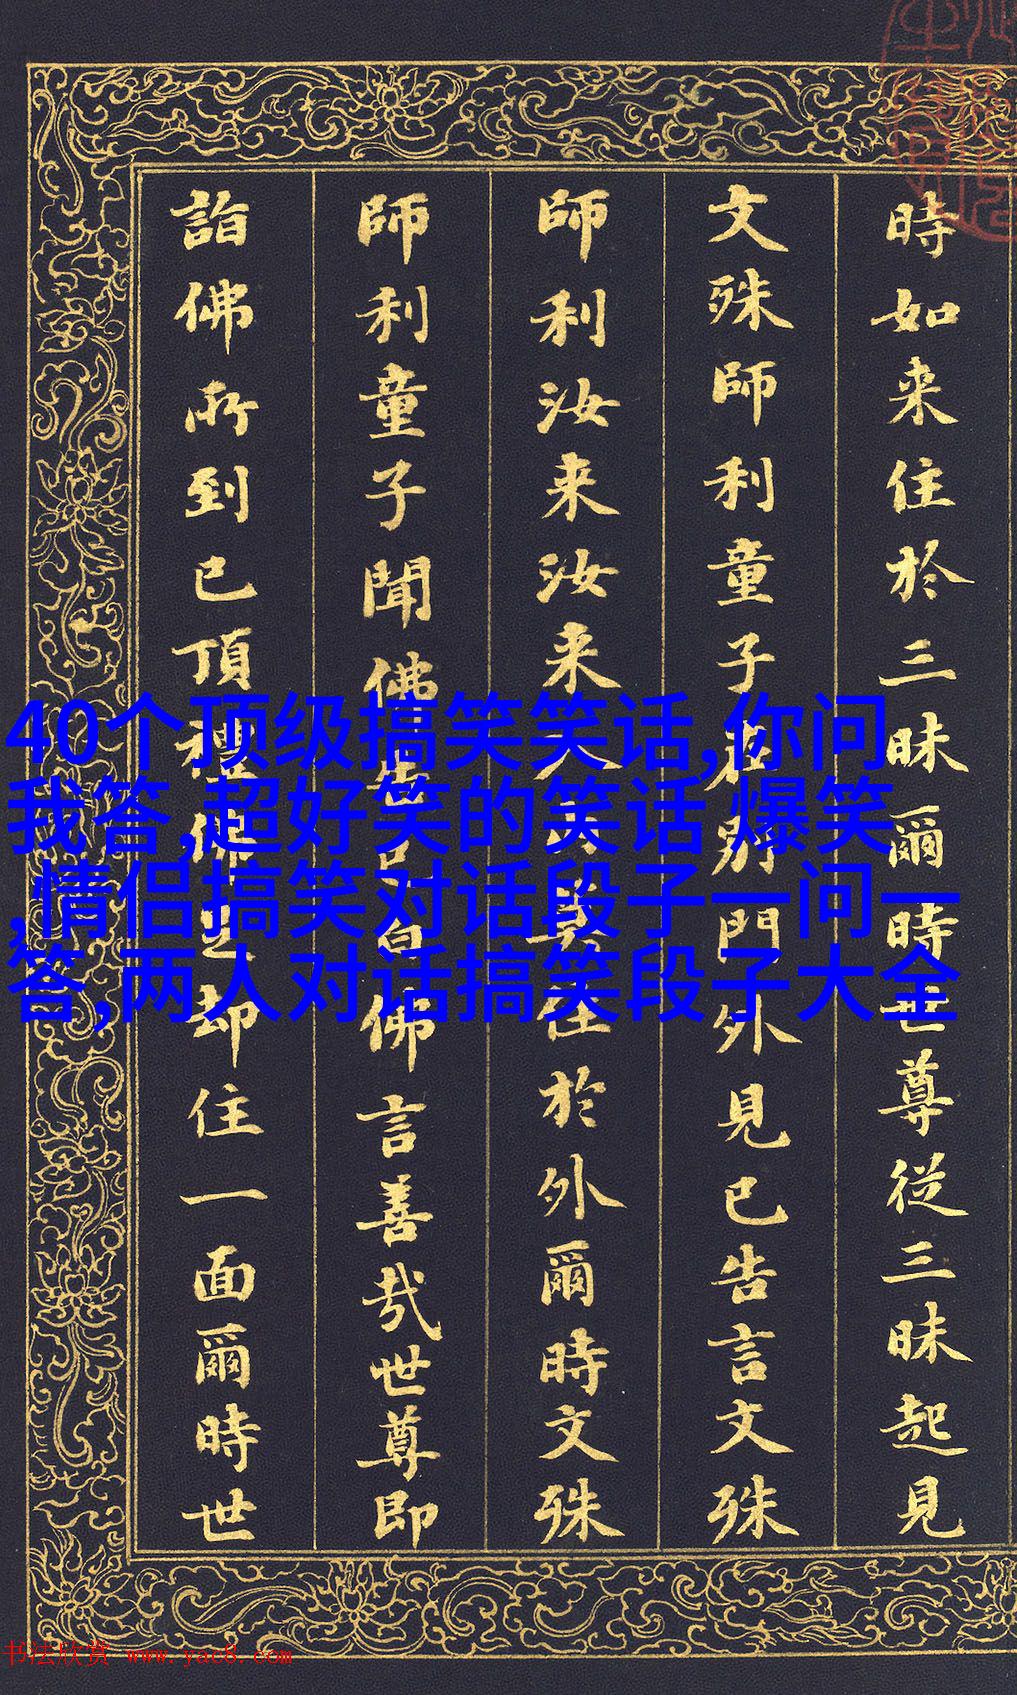 時如来住於三昧爾時世尊從三昧起見
文殊師利童子在別門外見已告言文殊
師利汝来汝来入住於外爾時文殊
師利童子聞佛告已白佛言善哉世尊即
詣佛所到已頂禮佛足却住一面爾時世
40个顶级搞笑笑话,你问
我答,超好笑的笑话,爆笑
,情侣搞笑对话段子一问一
答,两人对话搞笑段子大全
书法欣赏 www.yac8.com